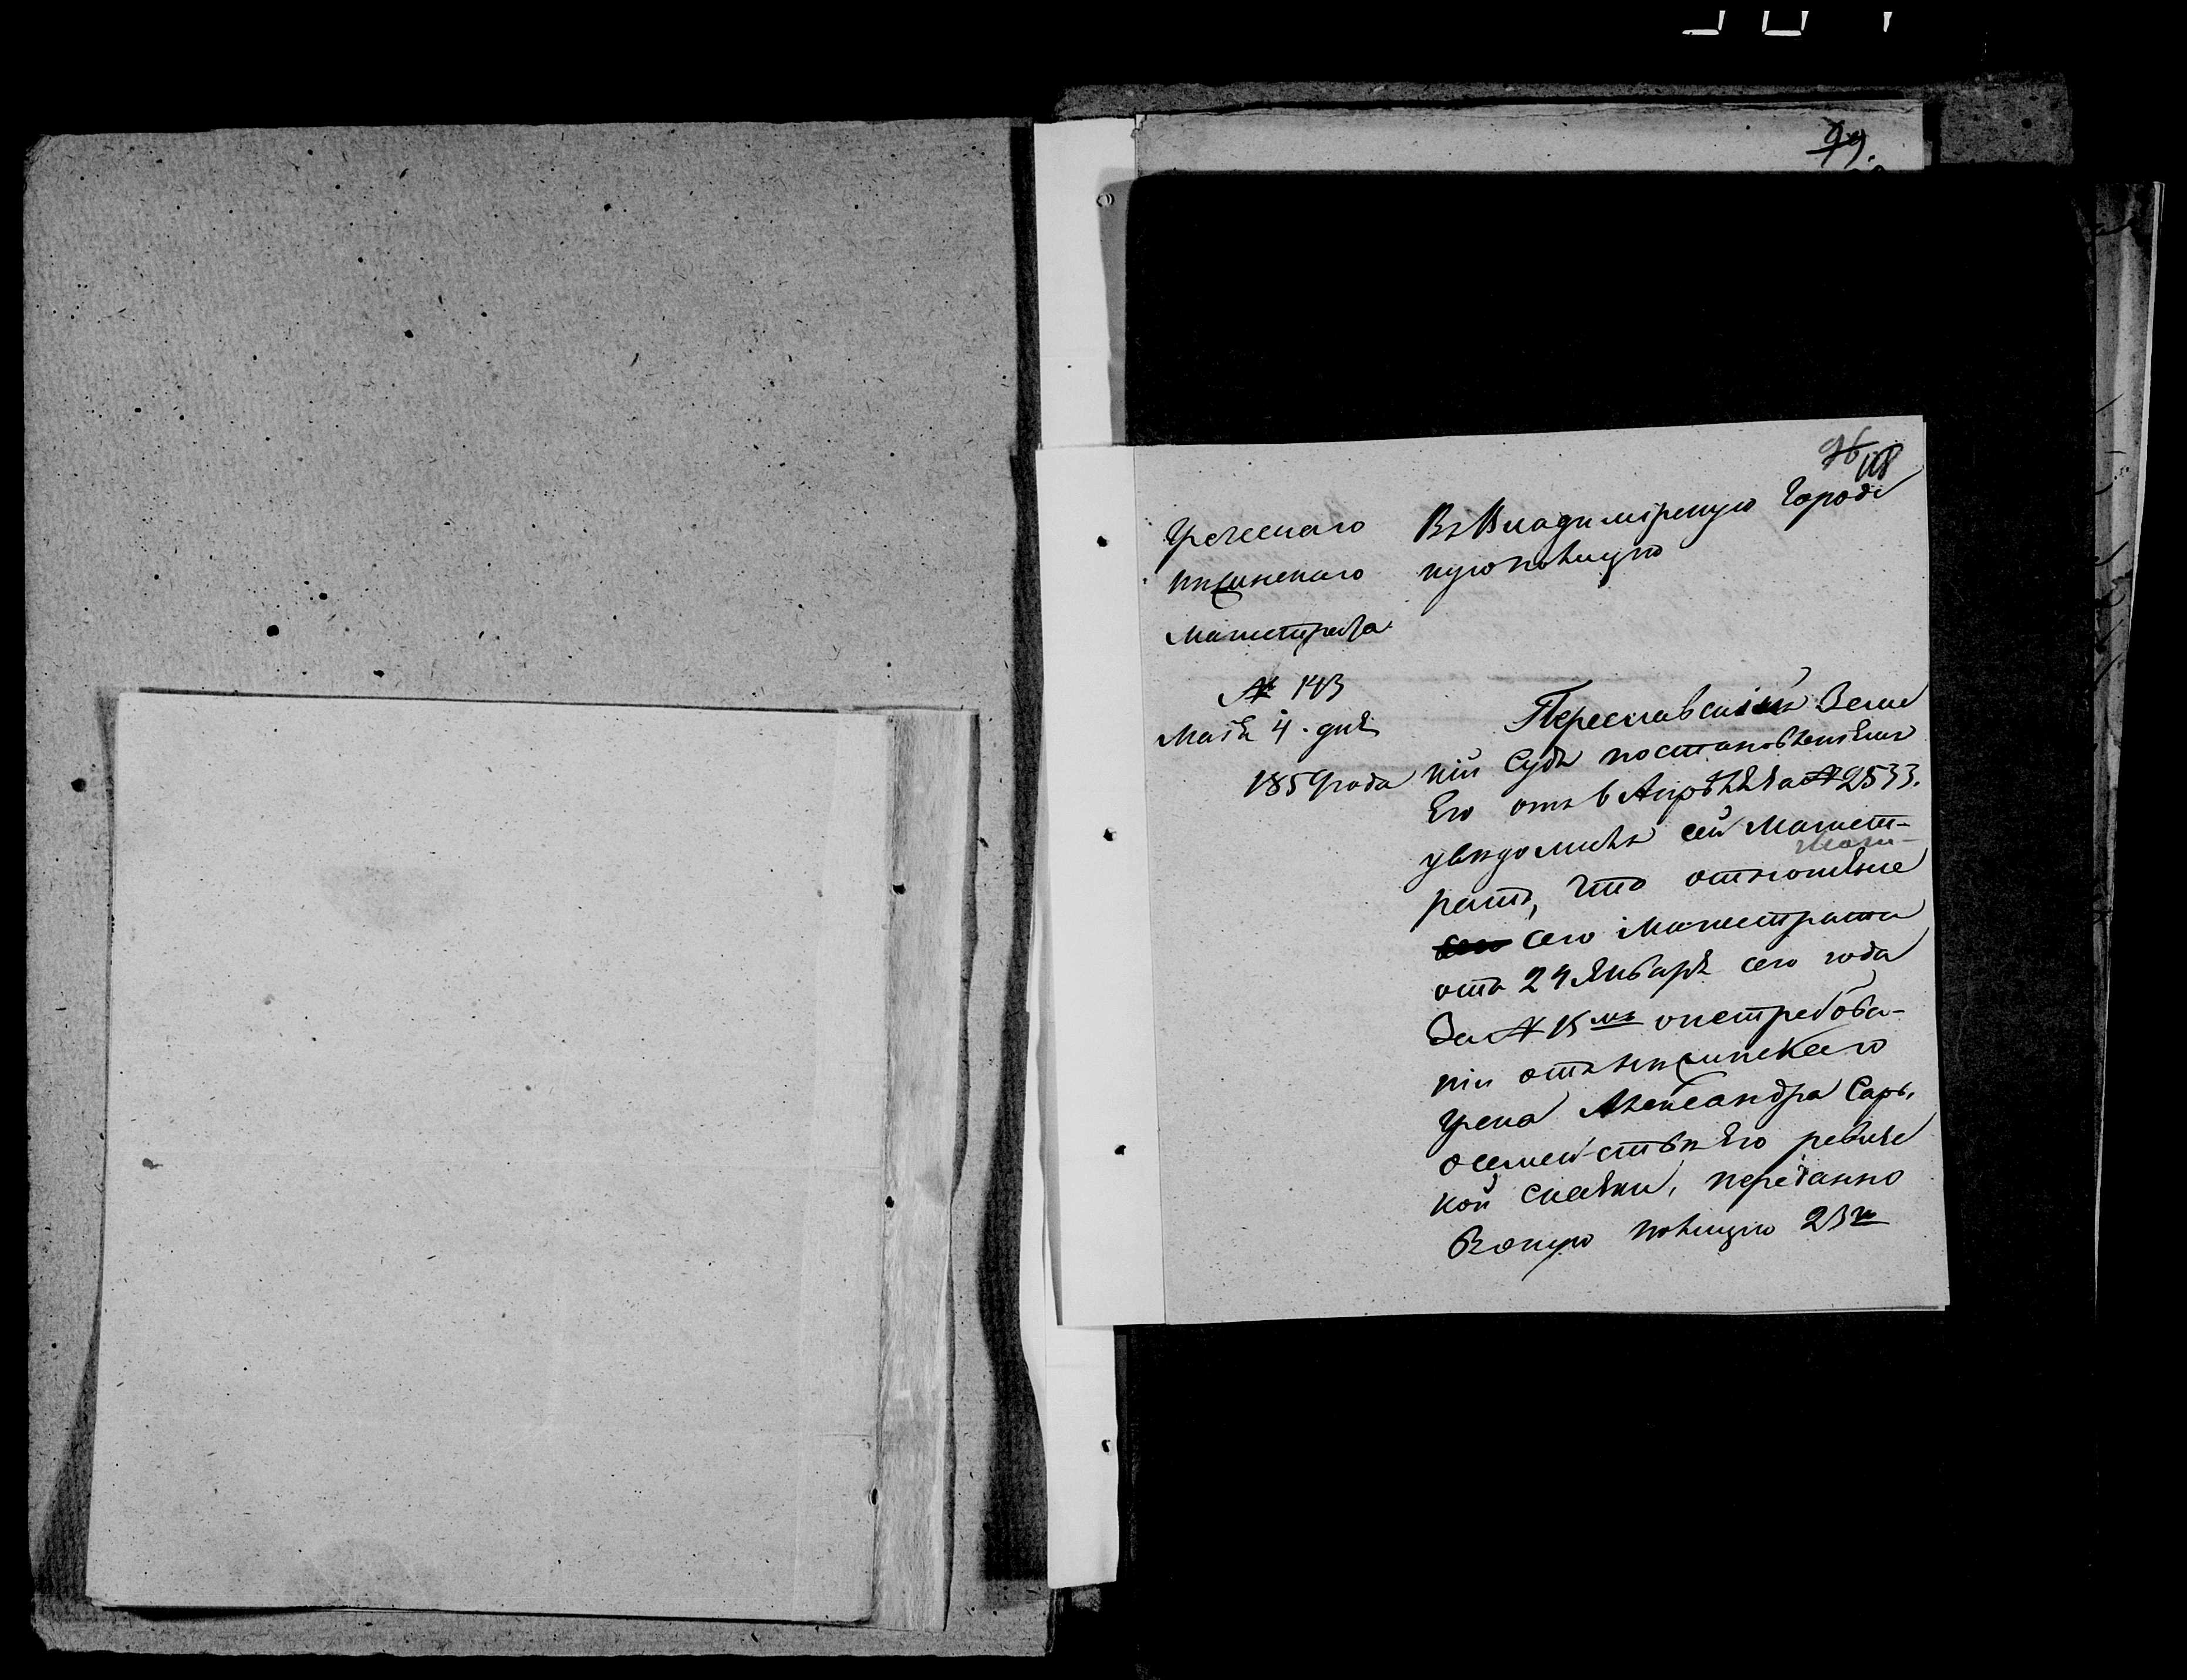 99.
96
118
Греческаго
нѣжинскаго
Магистрата
№ 143
Маія 4. дня
1859 года
Въ Владимірскую Городс
кую полицію
Переславскій Земс
кій Судъ постановленіемъ
Его отъ 6 Апрѣля за № 2533.
увѣдомилъ сей Магист-
ратъ, что отношеніе
сего Магистрата
отъ 24 Января сего года
За № 15мъ о истребова-
ніи отъ нѣжинскаго
грека Александра Сар.
о семействѣ Его ревизс
кой сказки, передано
Въ оную полицію 23го